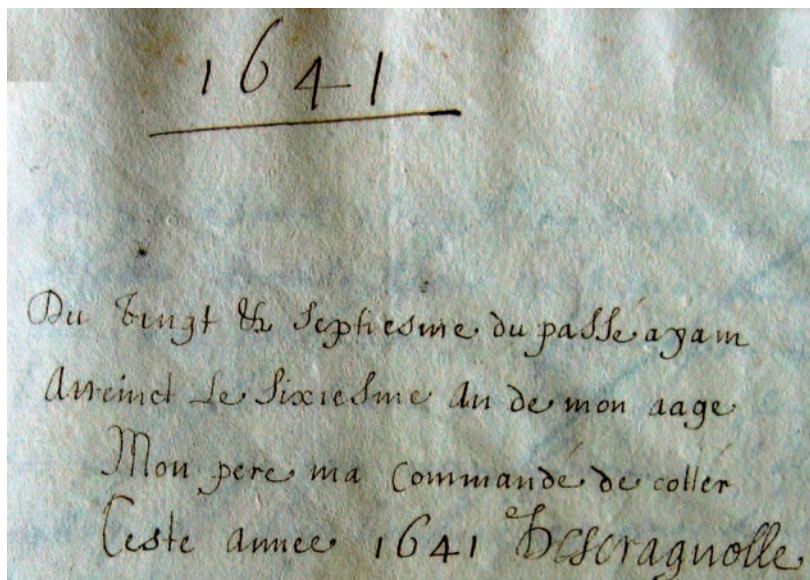 1641
Du Vingt & Septiesme du passé ayant
Atteinct Le Sixiesme An de mon aage
Mon pere ma Commandé de coller
Ceste annee 1641 Descragnolle